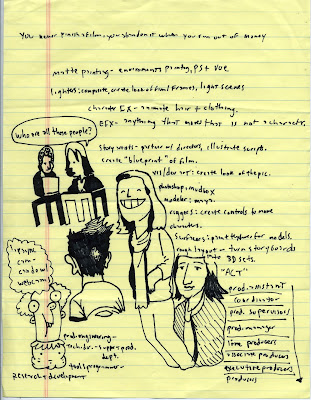 You never finish a film, you abandon it when you run out of money
matte painting - environment painting, PS + VUE
lighters: composite, create look of final frames, light scenes
character EX - animate hair + clothing.
EFX - anything that moves that is not a character.
Who are all these people?
story artists - picture w/ directors, illustrate scripts.
create "blueprint" of film.
vis/dev art: create look of the pic.
photoshop + mudbox
modeler: maya
riggers: create controls to move
characters.
surfacers: paint textures for models.
rough layout - turn storyboards
into 3D sets.
"PLT"
prod. assistant
coordinator
prod. supervisors
prod. manager
line producers
associate producers
executive producers
producers
people
can
windows
welcome
prod. engineering -
tech. dir. - support prod.
dept.
tools programmer -
Research + development